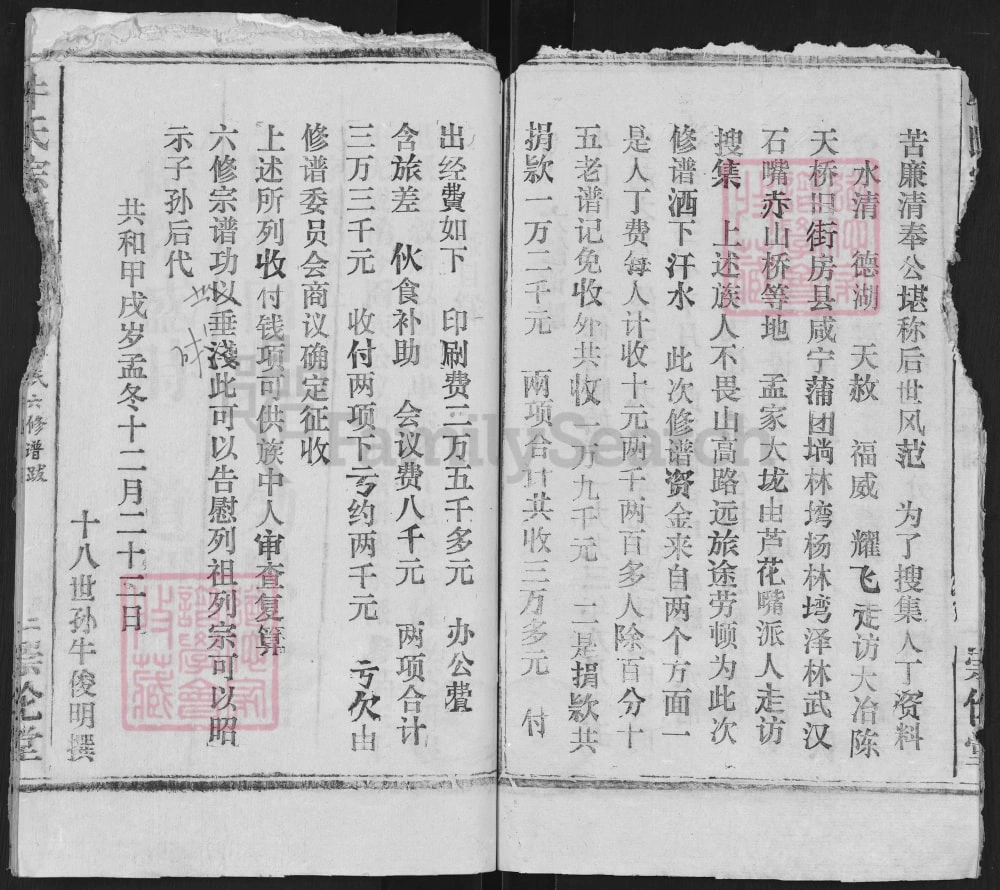 苦廉清奉公堪称后世风范 为了搜集人丁资料
水清 德湖 天赦 福威 耀飞走访大冶陈
天桥旧街房县咸宁蒲团垱林塆杨林塆泽林武汉
石嘴赤山桥等地 孟家大垅由芦花嘴派人走访
搜集 上述族人不畏山高路远旅途劳顿为此次
修谱洒下汗水 此次修谱资金来自两个方面一
是人丁费每人计收十元两千两百多人除百分十
五老谱记免收外共收一万九千元 二是捐款共
捐款一万二千元 两项合计共收三万多元 付
出经費如下 印刷费二万五千多元 办公費
含旅差 伙食补助 会议费八千元 两项合计
三万三千元 收付两项下亏约两千元 亏欠由
修谱委员会商议确定征收
上述所列收付钱项可供族中人审查复算
六修宗谱功以垂淺此可以告慰列祖列宗可以昭
示子孙后代
共和甲戌岁孟冬十二月二十二日
十八世孙牛俊明撰
牛氏宗
氏六修谱跋
二
FamilySearch